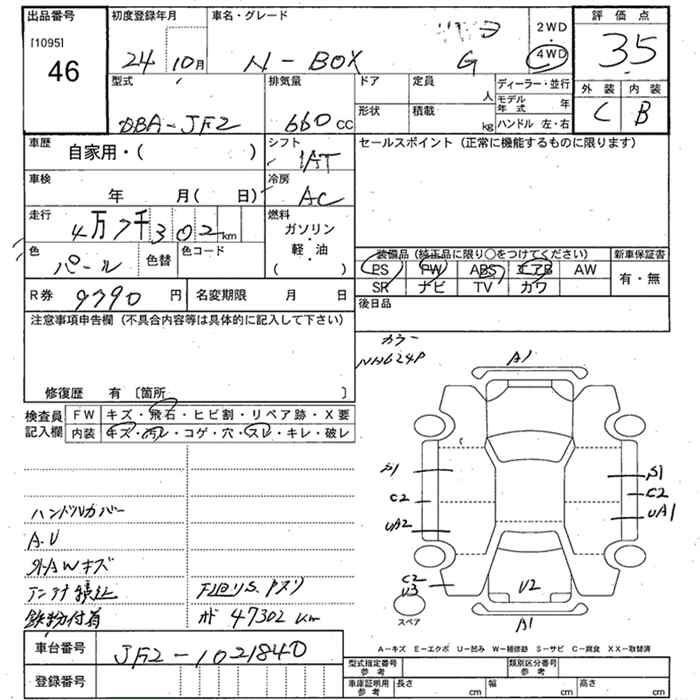 出品番号
[1095]
46
初度登録年月
24 10月
車名・グレード
N-BOX G
2WD
・
4WD
評価点
3.5
外装 内装
C B
型式
DBA-JF2
排気量
660 CC
ドア
定員
人
形状
積載
kg
ディーラー・並行
モデル年式 年
ハンドル 左・右
車歴
自家用・( )
シフト
IAT
車検
年 月( 日)
冷房
AC
走行
4万7千302km
燃料
ガソリン
・
軽・油
( )
色
パール
色替
色コード
セールスポイント (正常に機能するものに限ります)
装備品 (純正品に限り○をつけてください)
PS PW ABS エアB AW
SR ナビ TV カワ
新車保証書
有・無
R券 9790 円
名変期限 月 日
後日品
注意事項申告欄 (不具合内容等は具体的に記入して下さい)
修復歴 有 〔箇所 〕
検査員記入欄
FW キズ・飛石・ヒビ割・リペア跡・X要
内装 キズ・汚レ・コゲ・穴・スレ・キレ・破レ
カラー
NH624P
A1
S1
S1
C2
C2
UA2
UA1
C2
U3
U2
A1
スペア
ハンドルカバー
A.U
外AWキズ
鉄粉付着
47302 km
A-キズ E-エクボ U-凹み W-補修跡 S-サビ C-腐食 XX-取替済
車台番号
JF2-1021840
登録番号
型式指定番号 参考
類別区分番号 参考
車庫証明用 参考
長さ cm
幅 cm
高さ cm